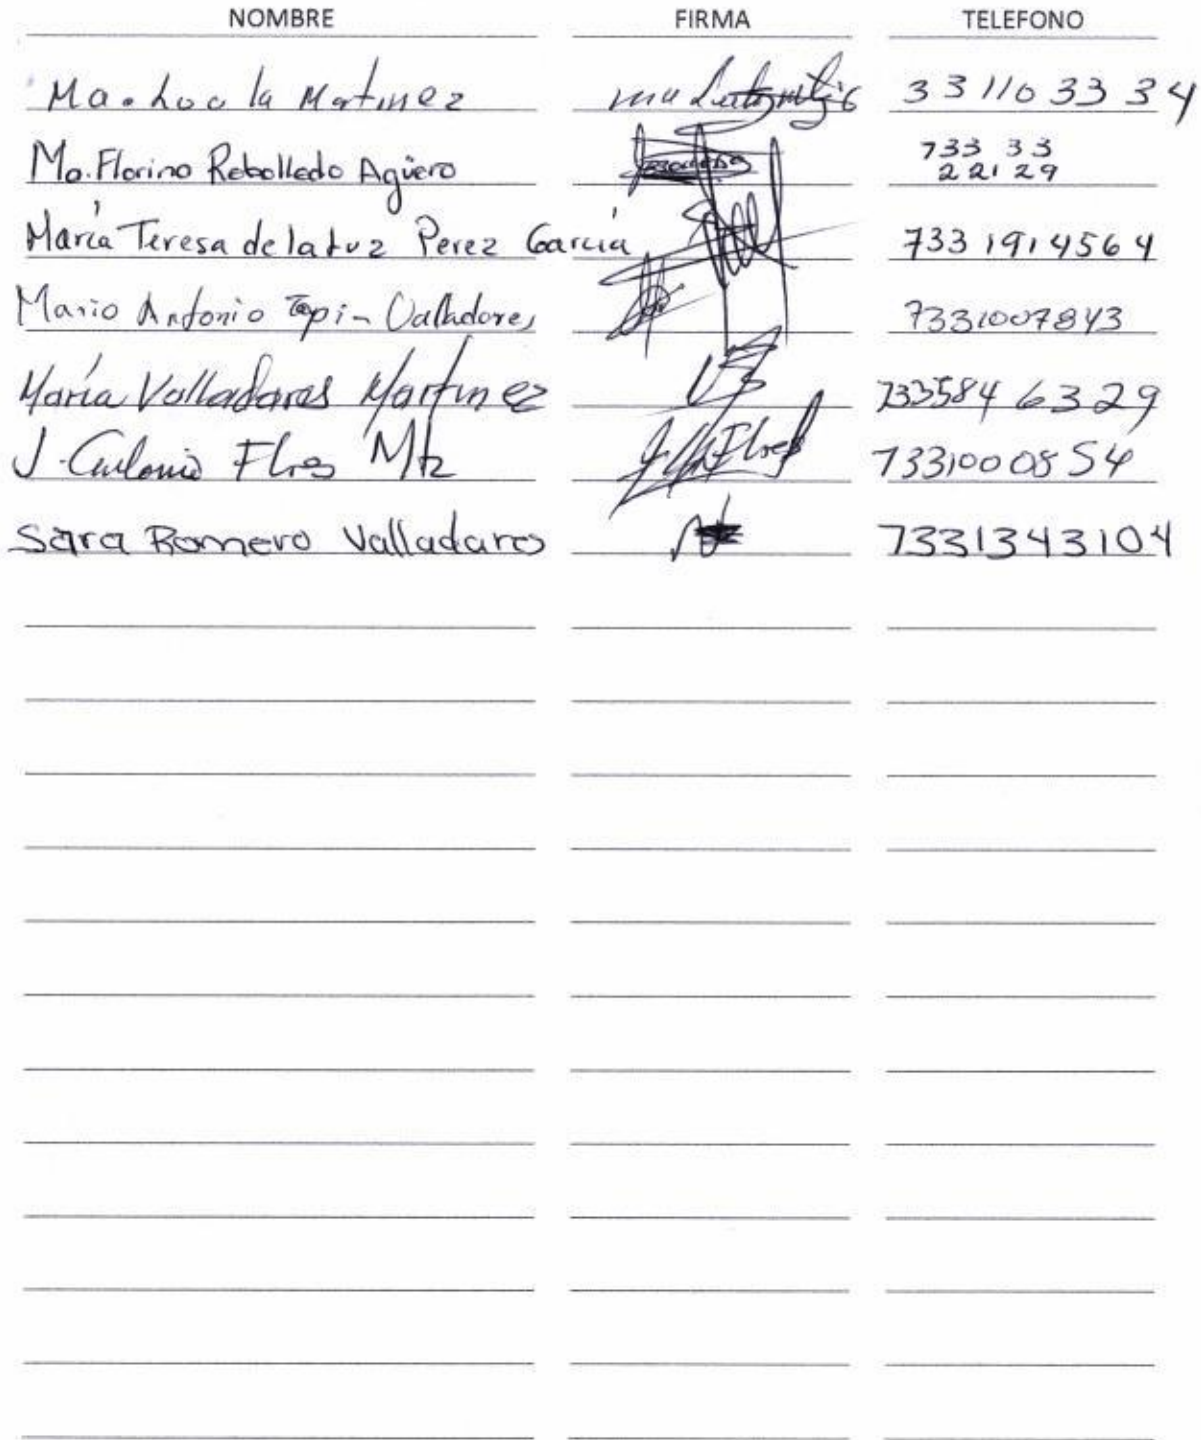 NOMBRE FIRMA TELEFONO
Ma. Luc la Martinez 33 110 33 34
Ma. Florina Rebolledo Agüero 733 33
22 29
María Teresa de la Luz Perez García 733 191 4564
Mario Antonio Tapia Valladores 7331007843
María Valladares Martinez 733584 6329
J. Flores Mtz Flores 7331000854
Sara Romero Valladares 7331343104